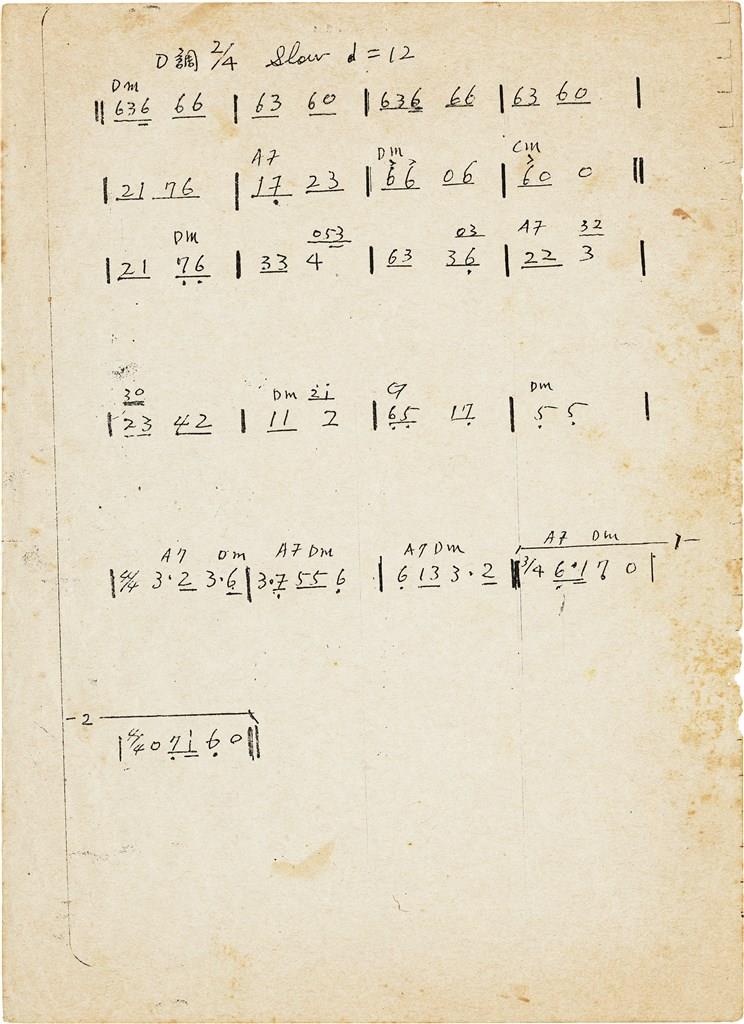 D調 2/4 Slow d = 12
Dm
‖ 636 66 | 63 60 | 636 66 | 63 60 |
A7 Dm Cm
| 21 76 | 17 23 | 66 06 | 60 0 ‖
Dm 053 03 A7 32
| 21 76 | 33 4 | 63 36 | 22 3 |
30 Dm 21 G
Dm
| 23 42 | 11 2 | 65 17 | 5 5 |
A7 Dm A7 Dm A7 Dm A7 Dm 1
| 4/4 3·2 3·6 | 3·7 55 6 | 6 13 3·2 ‖ 3/4 6·17 0 |
2
| 4/4 0 71 6 0 ‖